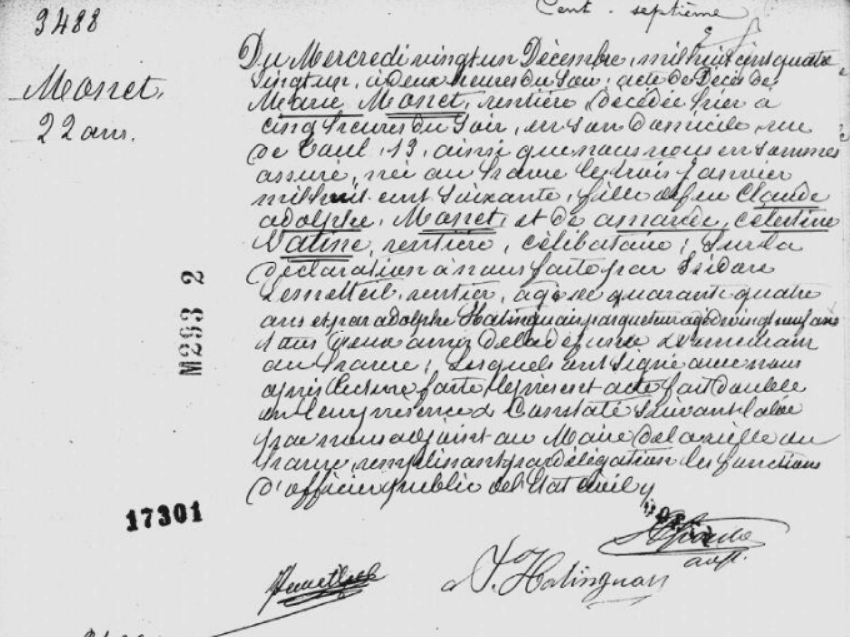 Cent septième
3488
Monet,
22 ans.
Du Mercredi vingt un Décembre, mil huit cent quatre
vingt un, à deux heures du soir, acte de Décès de
Marie Monet, rentière, décédée hier à
cinq heures du soir, en son domicile, rue
de 13, ainsi que nous nous en sommes
assuré, née au Havre le trois Janvier
mil huit cent soixante, fille de feu Claude
adolphe Monet, et de amande, célestine
Vatine, rentière, célibataire; Sur la
Déclaration à nous faite par Isidore
rentier, agé de quarante quatre
ans et par adolphe agé de vingt neuf ans
tous deux amis de la défunte
au havre; lesquels ont signé avec nous
après lecture faite le présent acte fait double
en leur présence & Constaté Suivant la loi
par nous adjoint au Maire de la ville du
havre, remplissant par délégation les fonctions
D'officier public de l'Etat civil
M293 2
17301